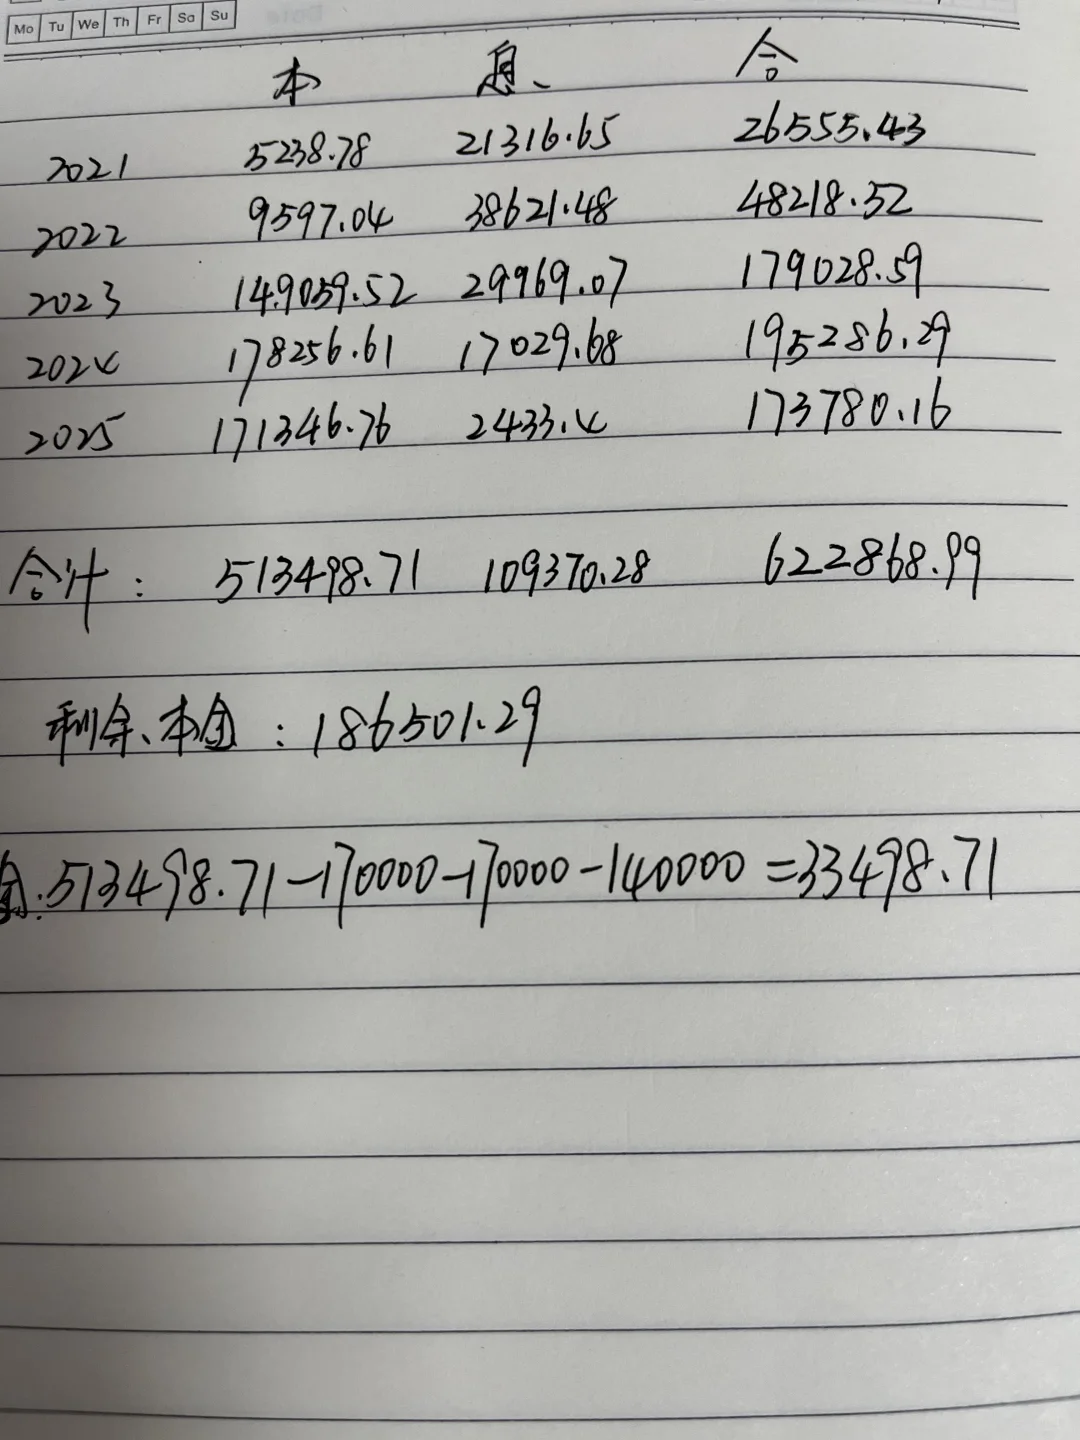 Mo Tu We Th Fr Sa Su
本 息 合
2021 5238.78 21316.65 26555.43
2022 9597.04 38621.48 48218.52
2023 149059.52 29969.07 179028.59
2024 178256.61 17029.68 195286.29
2025 171346.76 2433.4 173780.16
合计: 513498.71 109370.28 622868.99
剩余本金:186501.29
513498.71-170000-170000-140000=33498.71